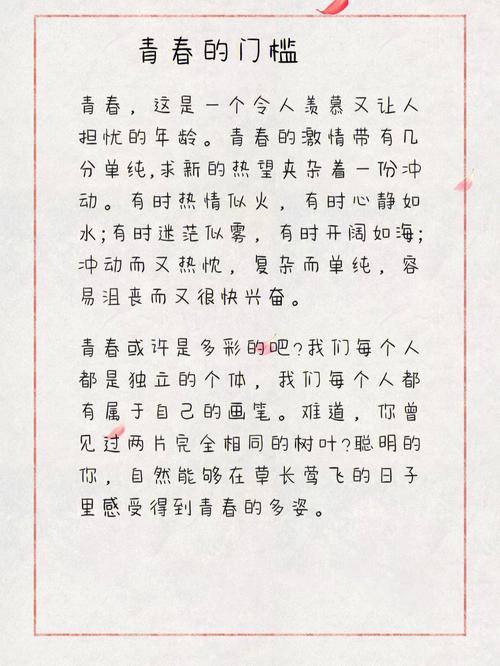 青春的门槛
青春，这是一个令人羡慕又让人
担忧的年龄。青春的激情带有几
分单纯,求新的热望夹杂着一份冲
动。有时热情似火，有时心静如
水;有时迷茫似雾，有时开阔如海;
冲动而又热忱，复杂而单纯，容
易沮丧而又很快兴奋。
青春或许是多彩的吧?我们每个人
都是独立的个体，我们每个人都
有属于自己的画笔。难道，你曾
见过两片完全相同的树叶?聪明的
你，自然能够在草长莺飞的日子
里感受得到青春的多姿。